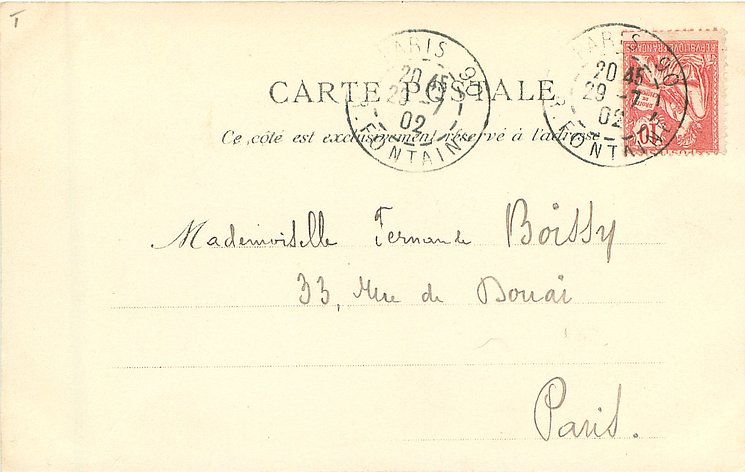 T
PARIS 90
20 45
29 -7
02
R. FONTAINE
PARIS 90
20 45
29 -7
02
R. FONTAINE
REPUBLIQUE FRANÇAISE
10
CARTE POSTALE
Ce côté est exclusivement réservé à l'adresse
Mademoiselle Fernande Boissy
33, Rue de Douai
Paris.